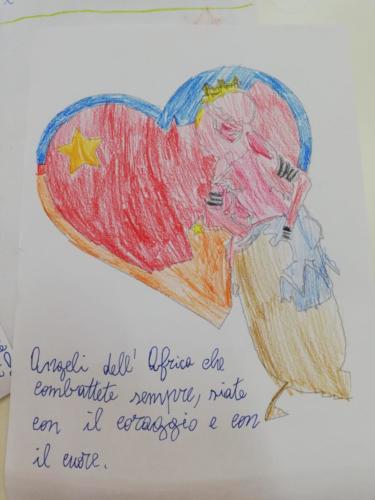 Angeli dell' Africa che
combattete sempre, siate
con il coraggio e con
il cuore.